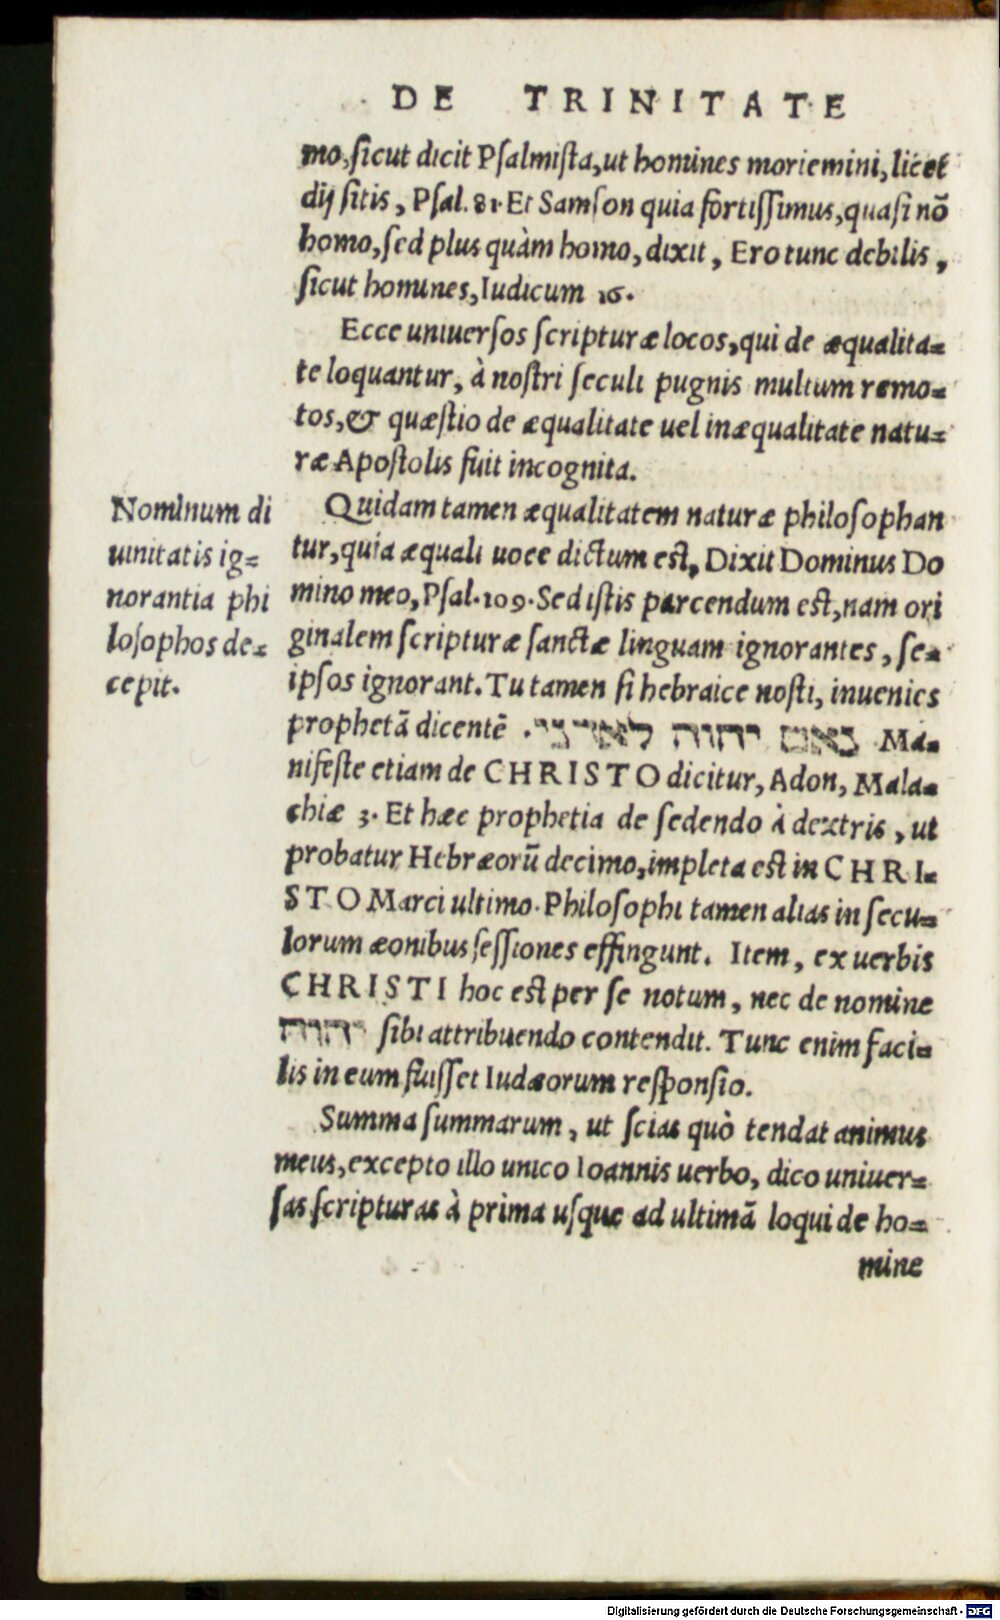 DE TRINITATE
mo, sicut dicit Psalmista, ut homines moriemini, licet
dij sitis, Psal. 81. Et Samson quia fortissimus, quasi nõ
homo, sed plus quàm homo, dixit, Ero tunc debilis,
sicut homines, Iudicum 16.
Ecce uniuersos scripturæ locos, qui de æqualita=
te loquantur, à nostri seculi pugnis multum remo=
tos, & quæstio de æqualitate uel inæqualitate natu=
ræ Apostolis fuit incognita.
Nominum di
uinitatis ig=
norantia phi
losophos de=
cepit.
Quidam tamen æqualitatem naturæ philosophan
tur, quia æquali uoce dictum est, Dixit Dominus Do
mino meo, Psal. 109. Sed istis parcendum est, nam ori
ginalem scripturæ sanctæ linguam ignorantes, se=
ipsos ignorant. Tu tamen si hebraice nosti, inuenies
prophetã dicentẽ נאם יהוה לאדני. Ma=
nifeste etiam de CHRISTO dicitur, Adon, Mala=
chiæ 3. Et hæc prophetia de sedendo à dextris, ut
probatur Hebræorũ decimo, impleta est in CHRI=
STO Marci ultimo. Philosophi tamen alias in secu=
lorum æonibus sessiones effingunt. Item, ex uerbis
CHRISTI hoc est per se notum, nec de nomine
יהוה sibi attribuendo contendit. Tunc enim faci=
lis in eum fuisset Iudæorum responsio.
Summa summarum, ut scias quò tendat animus
meus, excepto illo unico Ioannis uerbo, dico uniuer=
sas scripturas à prima usque ad ultimã loqui de ho=
mine
Digitalisierung gefördert durch die Deutsche Forschungsgemeinschaft - DFG